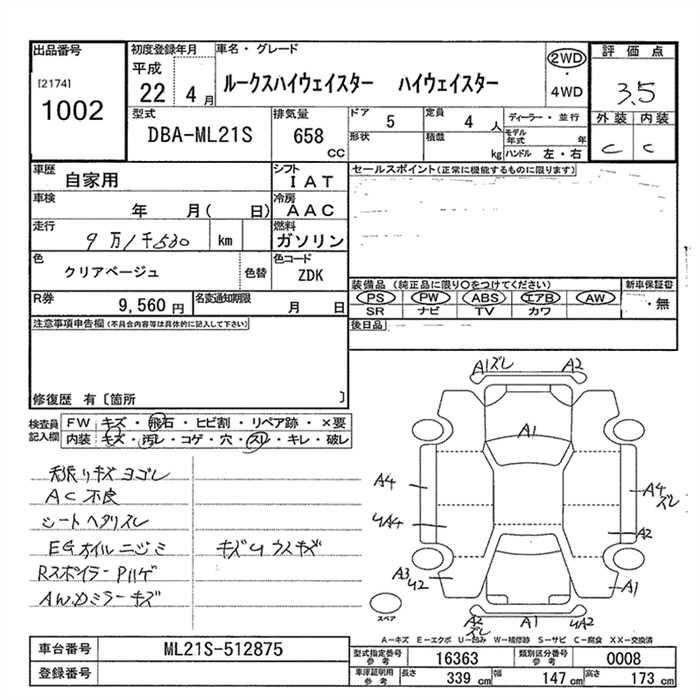 出品番号
[2174]
1002
初度登録年月
平成
22 4 月
車名・グレード
ルークスハイウェイスター ハイウェイスター
2WD
・
4WD
評価点
3.5
外装 内装
C C
型式
DBA-ML21S
排気量
658 CC
ドア 5
定員 4 人
形状
積載 kg
ディーラー・並行
モデル年式 年
ハンドル 左・右
車歴
自家用
シフト
IAT
セールスポイント(正常に機能するものに限ります)
車検
年 月( 日)
冷房
AAC
走行
9万1千530 km
燃料
ガソリン
色
クリアベージュ
色替
色コード
ZDK
装備品 (純正品に限り○をつけてください)
新車保証書
PS PW ABS エアB AW
SR ナビ TV カワ
・無
R券
9,560 円
名変通知期限
月 日
後日品
注意事項申告欄(不具合内容等は具体的に記入して下さい)
修復歴 有〔箇所 〕
検査員記入欄
FW キズ・飛石・ヒビ割・リペア跡・×要
内装 キズ・汚レ・コゲ・穴・スレ・キレ・破レ
天張リキズヨゴレ
AC不良
シートヘタリスレ
EGオイルニジミ キズUウスキズ
RスポイラーPハゲ
AW.Dミラーキズ
A1ズレ A2
A1
A4
A4ズレ
U4A4
A2
A3U2
A1
スペア
A2ズレ A1 UA2
A-キズ E-エクボ U-凹み W-補修跡 S-サビ C-腐食 XX-交換済
車台番号
ML21S-512875
登録番号
型式指定番号参考
16363
類別区分番号参考
0008
車庫証明用参考
長さ 339 cm
幅 147 cm
高さ 173 cm